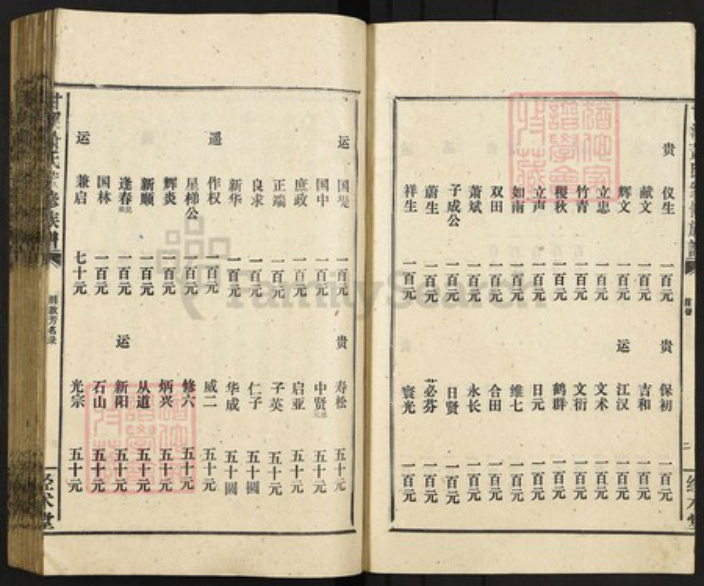 贵
仪生 一百元
献文 一百元
辉文 一百元
立忠 一百元
竹青 一百元
稷秋 一百元
立声 一百元
如南 一百元
双田 一百元
萧斌 一百元
子成公 一百元
蔚生 一百元
祥生 一百元
贵
保初 一百元
吉和 一百元
运
江汉 一百元
文术 一百元
文衍 一百元
鹤群 一百元
日元 一百元
维七 一百元
合田 一百元
永长 一百元
日贤 一百元
必芬 一百元
寰光 一百元
二
运
国堤 一百元
国中 一百元
庶政 一百元
正端 一百元
良求 一百元
新华 一百元
遥
作权 一百元
星梯公 一百元
辉炎 一百元
新顺 一百元
逢春 一百元
国林 一百元
运
兼启 七十元
贵
寿松 五十元
中贤 五十元
启亚 五十元
子英 五十元
仁子 五十圆
华成 五十圆
威二 五十元
修六 五十元
炳兴 五十元
从道 五十元
运
新阳 五十元
石山 五十元
光宗 五十元
捐款芳名录
经术堂
FamilySearch